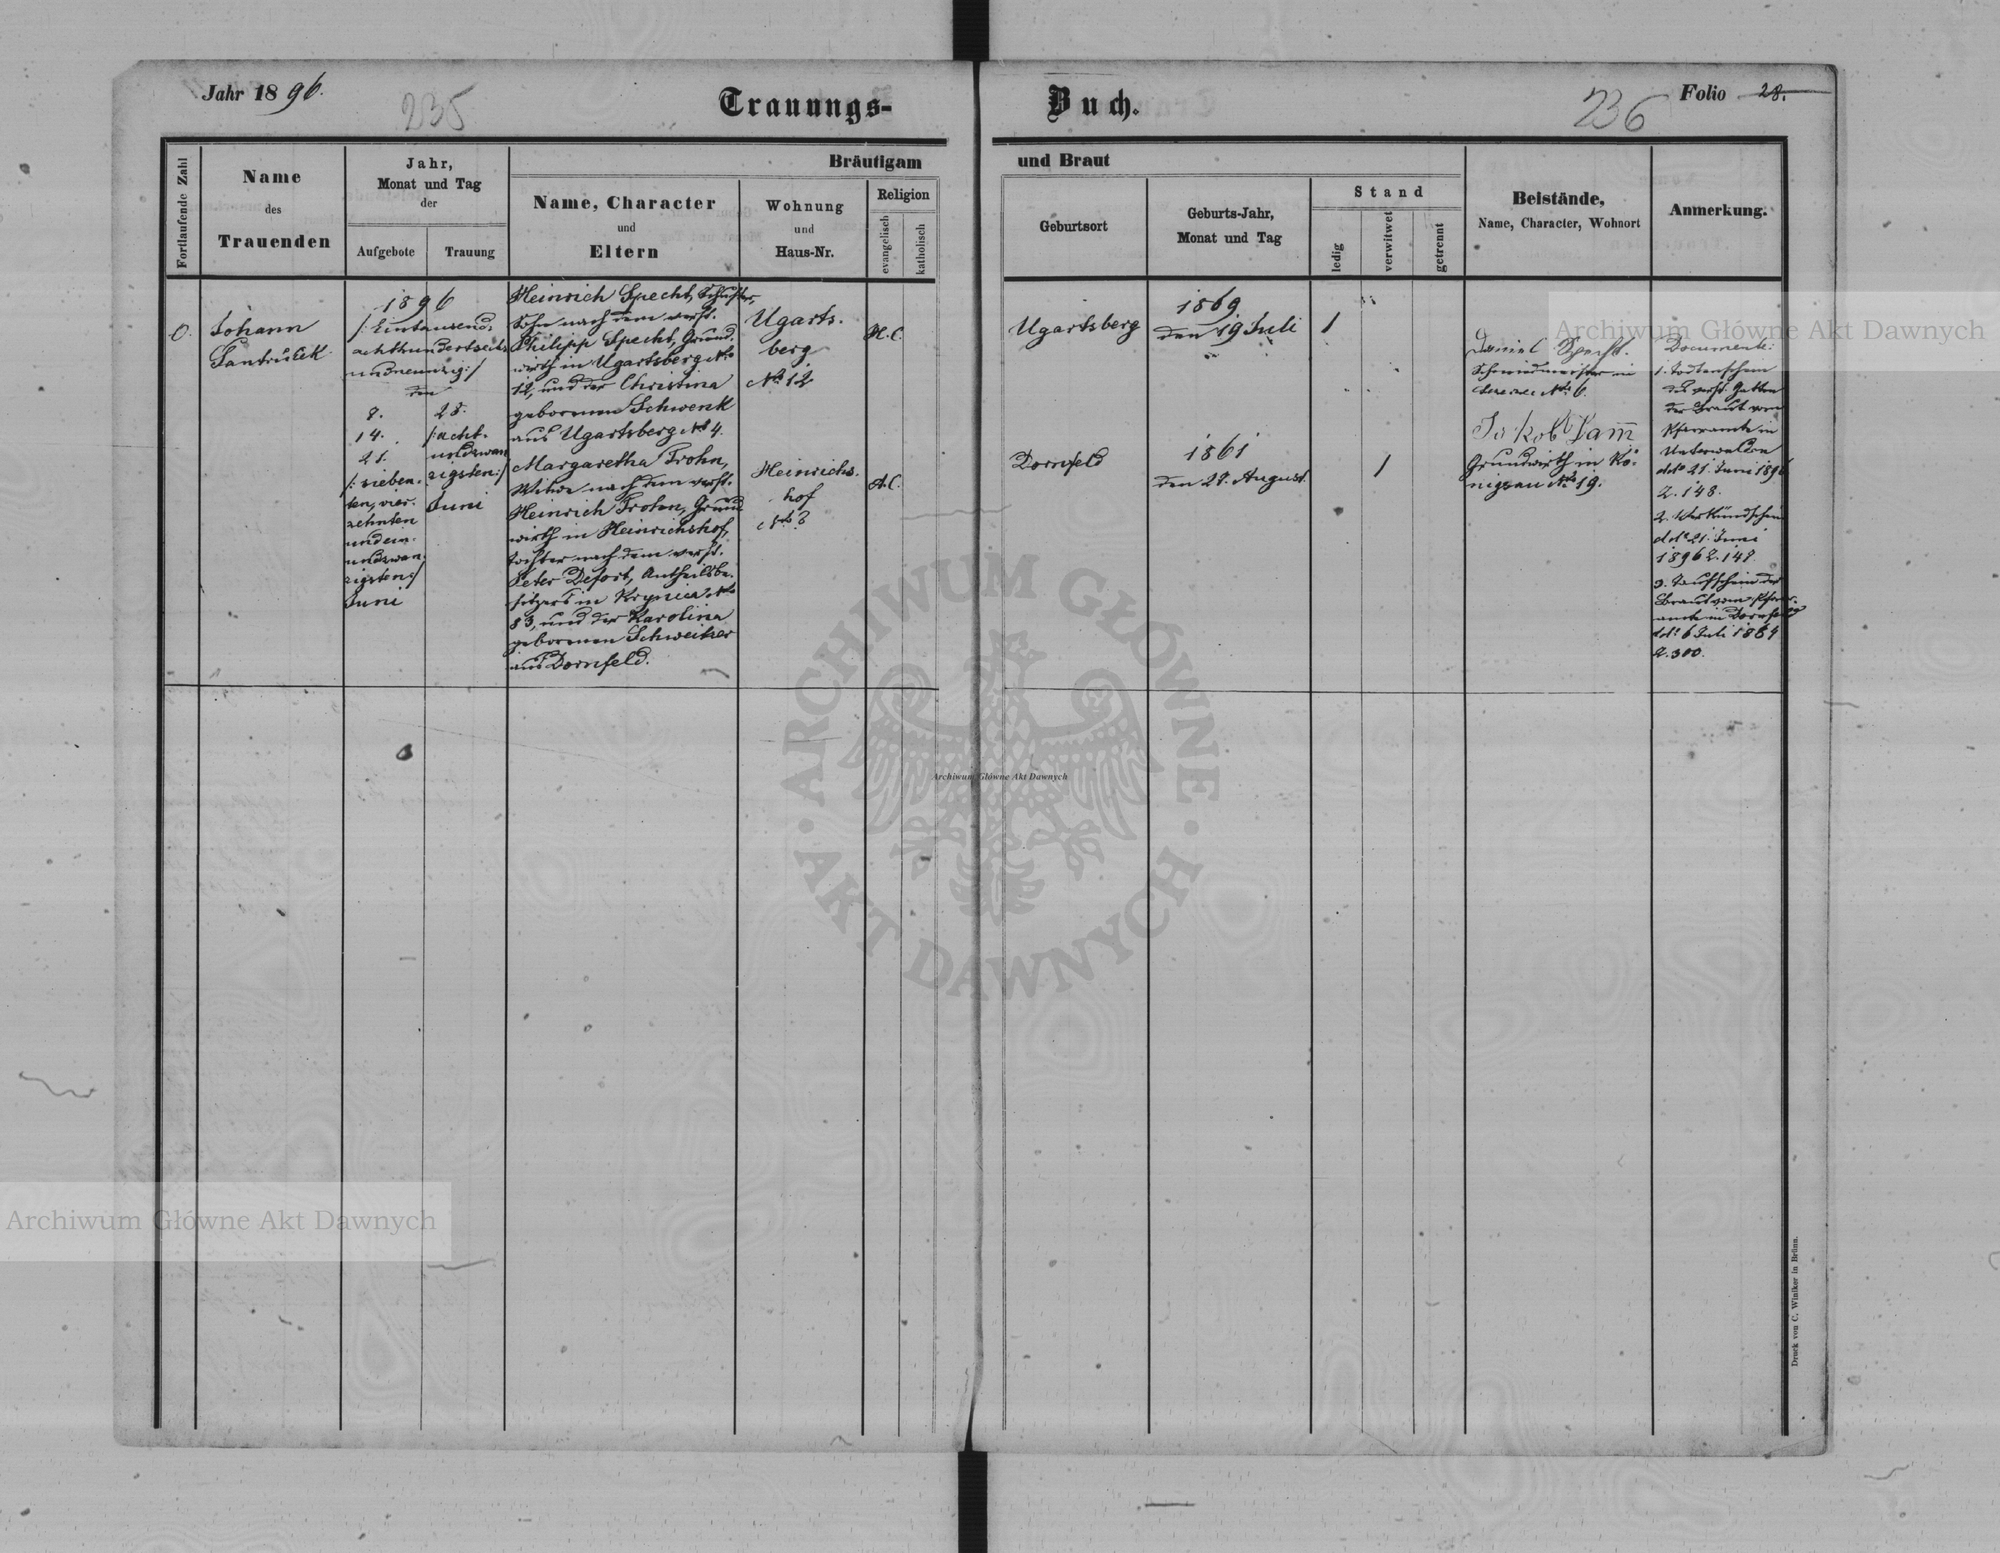 Jahr 1896.
235
Trauungs-
Buch.
236
Folio 28.
Fortlaufende Zahl
Name
des
Trauenden
Jahr,
Monat und Tag
der
Aufgebote
Trauung
Bräutigam
Name, Character
und
Eltern
Wohnung
und
Haus-Nr.
Religion
evangelisch
katholisch
und Braut
Geburtsort
Geburts-Jahr,
Monat und Tag
Stand
ledig
verwitwet
getrennt
Beistände,
Name, Character, Wohnort
Anmerkung.
Johann
1896
/: Eintausend-
achthundertsechs
undneunzig :/
den
8.
14.
21.
/: sieben-
ten, vier-
zehnten
undein-
undzwan-
zigsten :/
Juni
28.
/: acht-
undzwan
zigsten :/
Juni
Heinrich Specht,
Sohn nach dem verst.
Philipp Specht, Grund-
wirth in Ugartsberg No
12, und der Christina
geborenen Schwenk
aus Ugartsberg No 4.
Margaretha Trohn,
Witwe nach dem verst.
Heinrich Trohn, Grund
wirth in Heinrichshof,
Tochter nach dem verst.
Peter Defort, Antheilsbe-
sitzers in Krynica No
83, und der Karolina
geborenen Schweitzer
aus Dornfeld.
Ugarts-
berg
No 12
Heinrichs-
hof
H. C.
A. C.
Ugartsberg
1869
den 19 Juli
1
Dornfeld
1861
den 27. August
1
Daniel Specht.
Schmiedmeister in
No 6.
Jakob Lamm
Grundwirth in Kö-
nigsau No 19.
Documente:
1. Todtenschein
des verst. Gatten
der Braut vom
Pfarramte in
Unterwalden
ddto 21. Juni 1896
Z. 148.
2. Verkündschein
ddto 21. Juni
1896 Z. 147.
3. Taufschein der
Braut vom Pfarr-
amte in Dornfeld
ddto 6 Juli 1884
Z. 300.
Archiwum Główne Akt Dawnych
ARCHIWUM GŁÓWNE
AKT DAWNYCH
Archiwum Główne Akt Dawnych
Archiwum Główne Akt Dawnych
Druck von C. Winiker in Brünn.